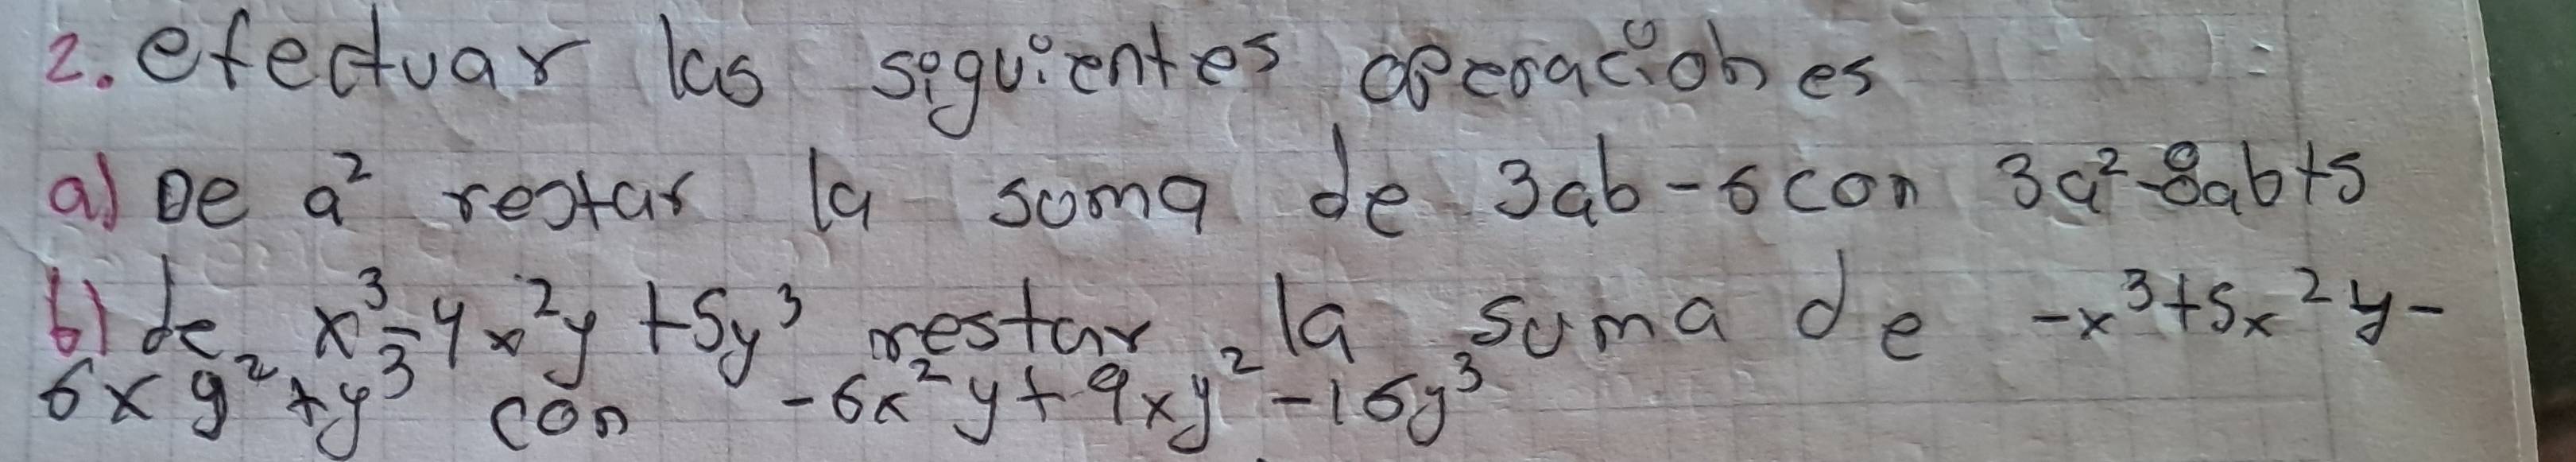 2. efectuar las siguientes operaciones
a) De a² restar la suma de 3ab-6 con 3a²-8ab+5
b) de x³-4x²y+5y³ restar la suma de -x³+5x²y-
6xy²+y³ con -6x²y+9xy²-16y³